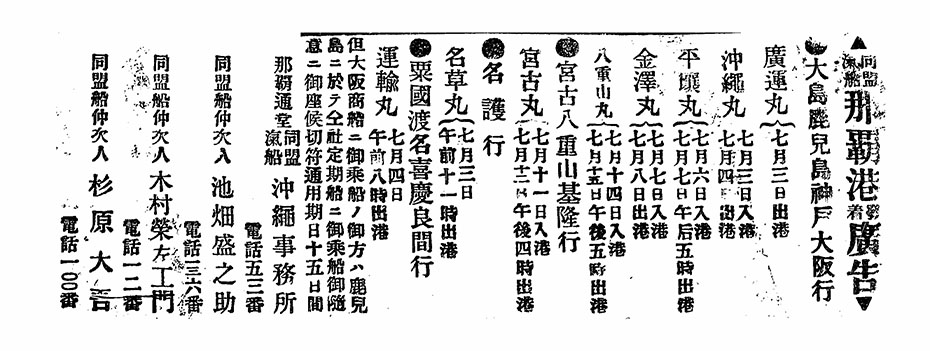 ▲同盟滊船那覇港發着廣告▼
●大島鹿兒島神戸大阪行
廣運丸 七月三日出港
沖繩丸 七月三日入港 七月四日出港
平壤丸 七月六日入港 七月七日午后五時出港
金澤丸 七月七日入港 七月八日出港
八重山丸 七月十四日入港 七月十五日午後五時出港
●宮古八重山基隆行
宮古丸 七月十一日入港 七月十二日午後四時出港
●名護行
名草丸 七月三日午前十一時出港
●粟國渡名喜慶良間行
運輸丸 七月四日午前八時出港
但大阪商船ニ御乘船ノ御方ハ鹿兒
島ニ於テ仝社定期船ニ御乘船御隨
意ニ御座候切符通用期日十五日間
那覇通堂 同盟滊船 沖繩事務所
電話五三番
同盟船仲次人 池畑盛之助
電話一三六番
同盟船仲次人 木村榮左工門
電話一二番
同盟船仲次人 杉原大吉
電話一〇〇番